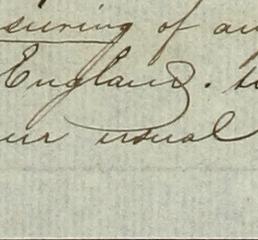 suring of an
England. to
our usual